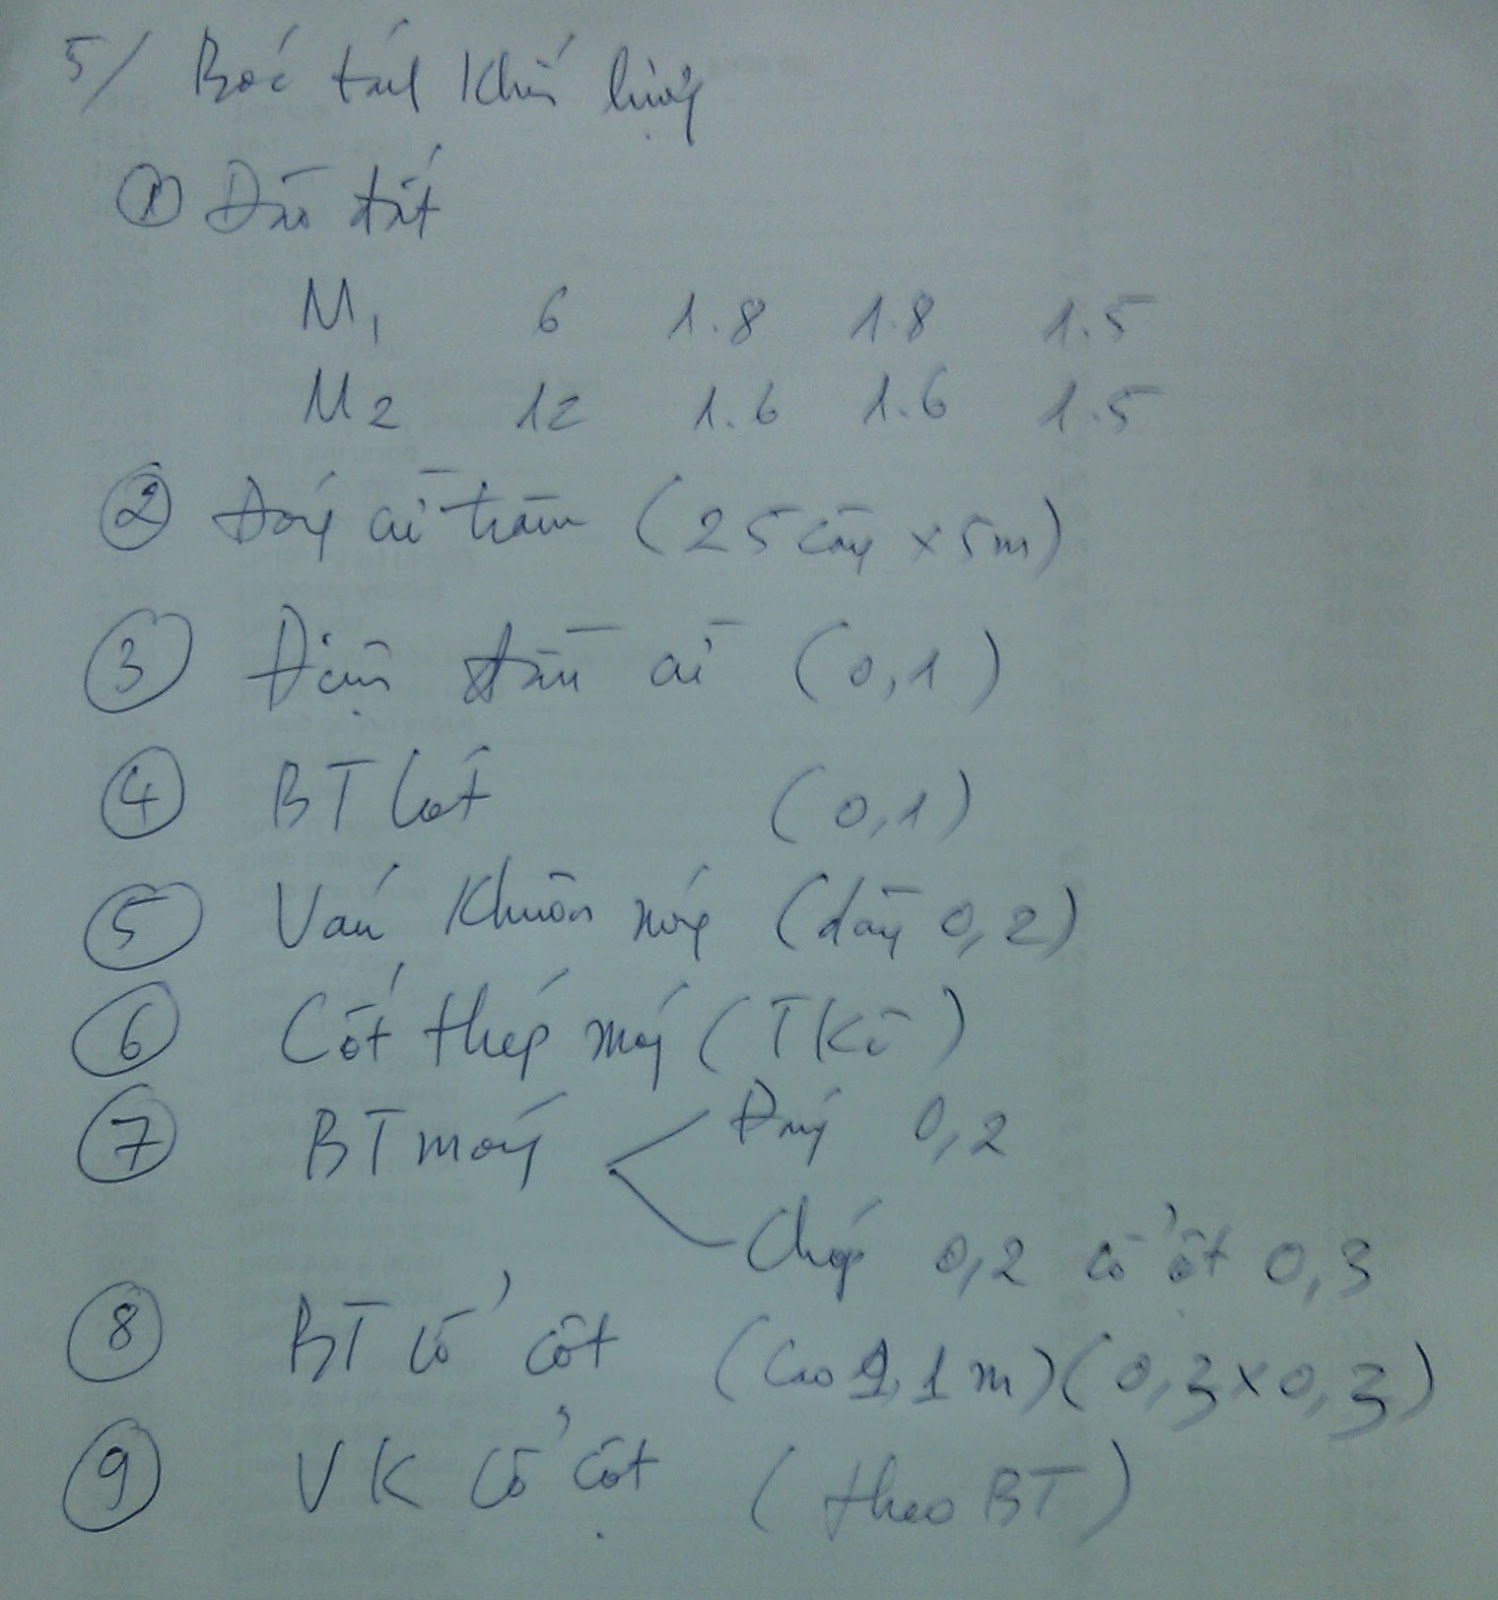 5/ Bóc tách khối lượng
① Đào đất
M1 6 1.8 1.8 1.5
M2 12 1.6 1.6 1.5
② Đóng cừ tràm (25 cây x 5m)
③ Đệm đầu cừ (0,1)
④ BT lót (0,1)
⑤ Ván khuôn móng (dày 0,2)
⑥ Cốt thép móng (TKê)
⑦ BT móng
Đáy 0,2
Chóp 0,2 cổ cột 0,3
⑧ BT cổ cột (cao 1,1m) (0,3 x 0,3)
⑨ VK cổ cột (theo BT)